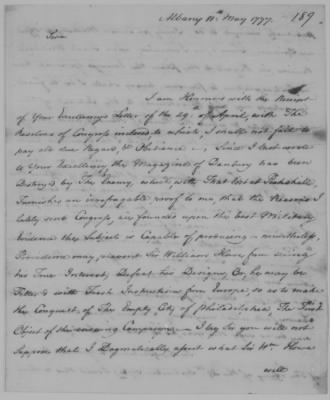 Albany 11th May 1777.
189
Sir
I am Honour'd with the Receipt
of Your Excellency's Letter of the 29th of April, with The
Resolves of Congress inclosed, to which I shall not fail to
pay all due Regard, & Obedience. Since I last wrote
to Your Excellency the Magazine of Danbury has been
Destroy'd by The Enemy, which, with That lost at Peekskill,
Furnishes an irrefragable proof to me that the Reasons I
lately sent Congress, are founded upon the best Military
Evidence the Subject is Capable of producing — nevertheless,
Providence may, prevent Sir William Howe from seeing
his True Interest, Defeat his Designs, Or, he may be
Fetter'd with Fresh Instructions from Europe, so as to make
the Conquest, of The Empty City of Philadelphia, The First
Object of the ensuing Campaign — I beg Sir you will not
Suppose that I Dogmatically assert what Sir Wm Howe
will